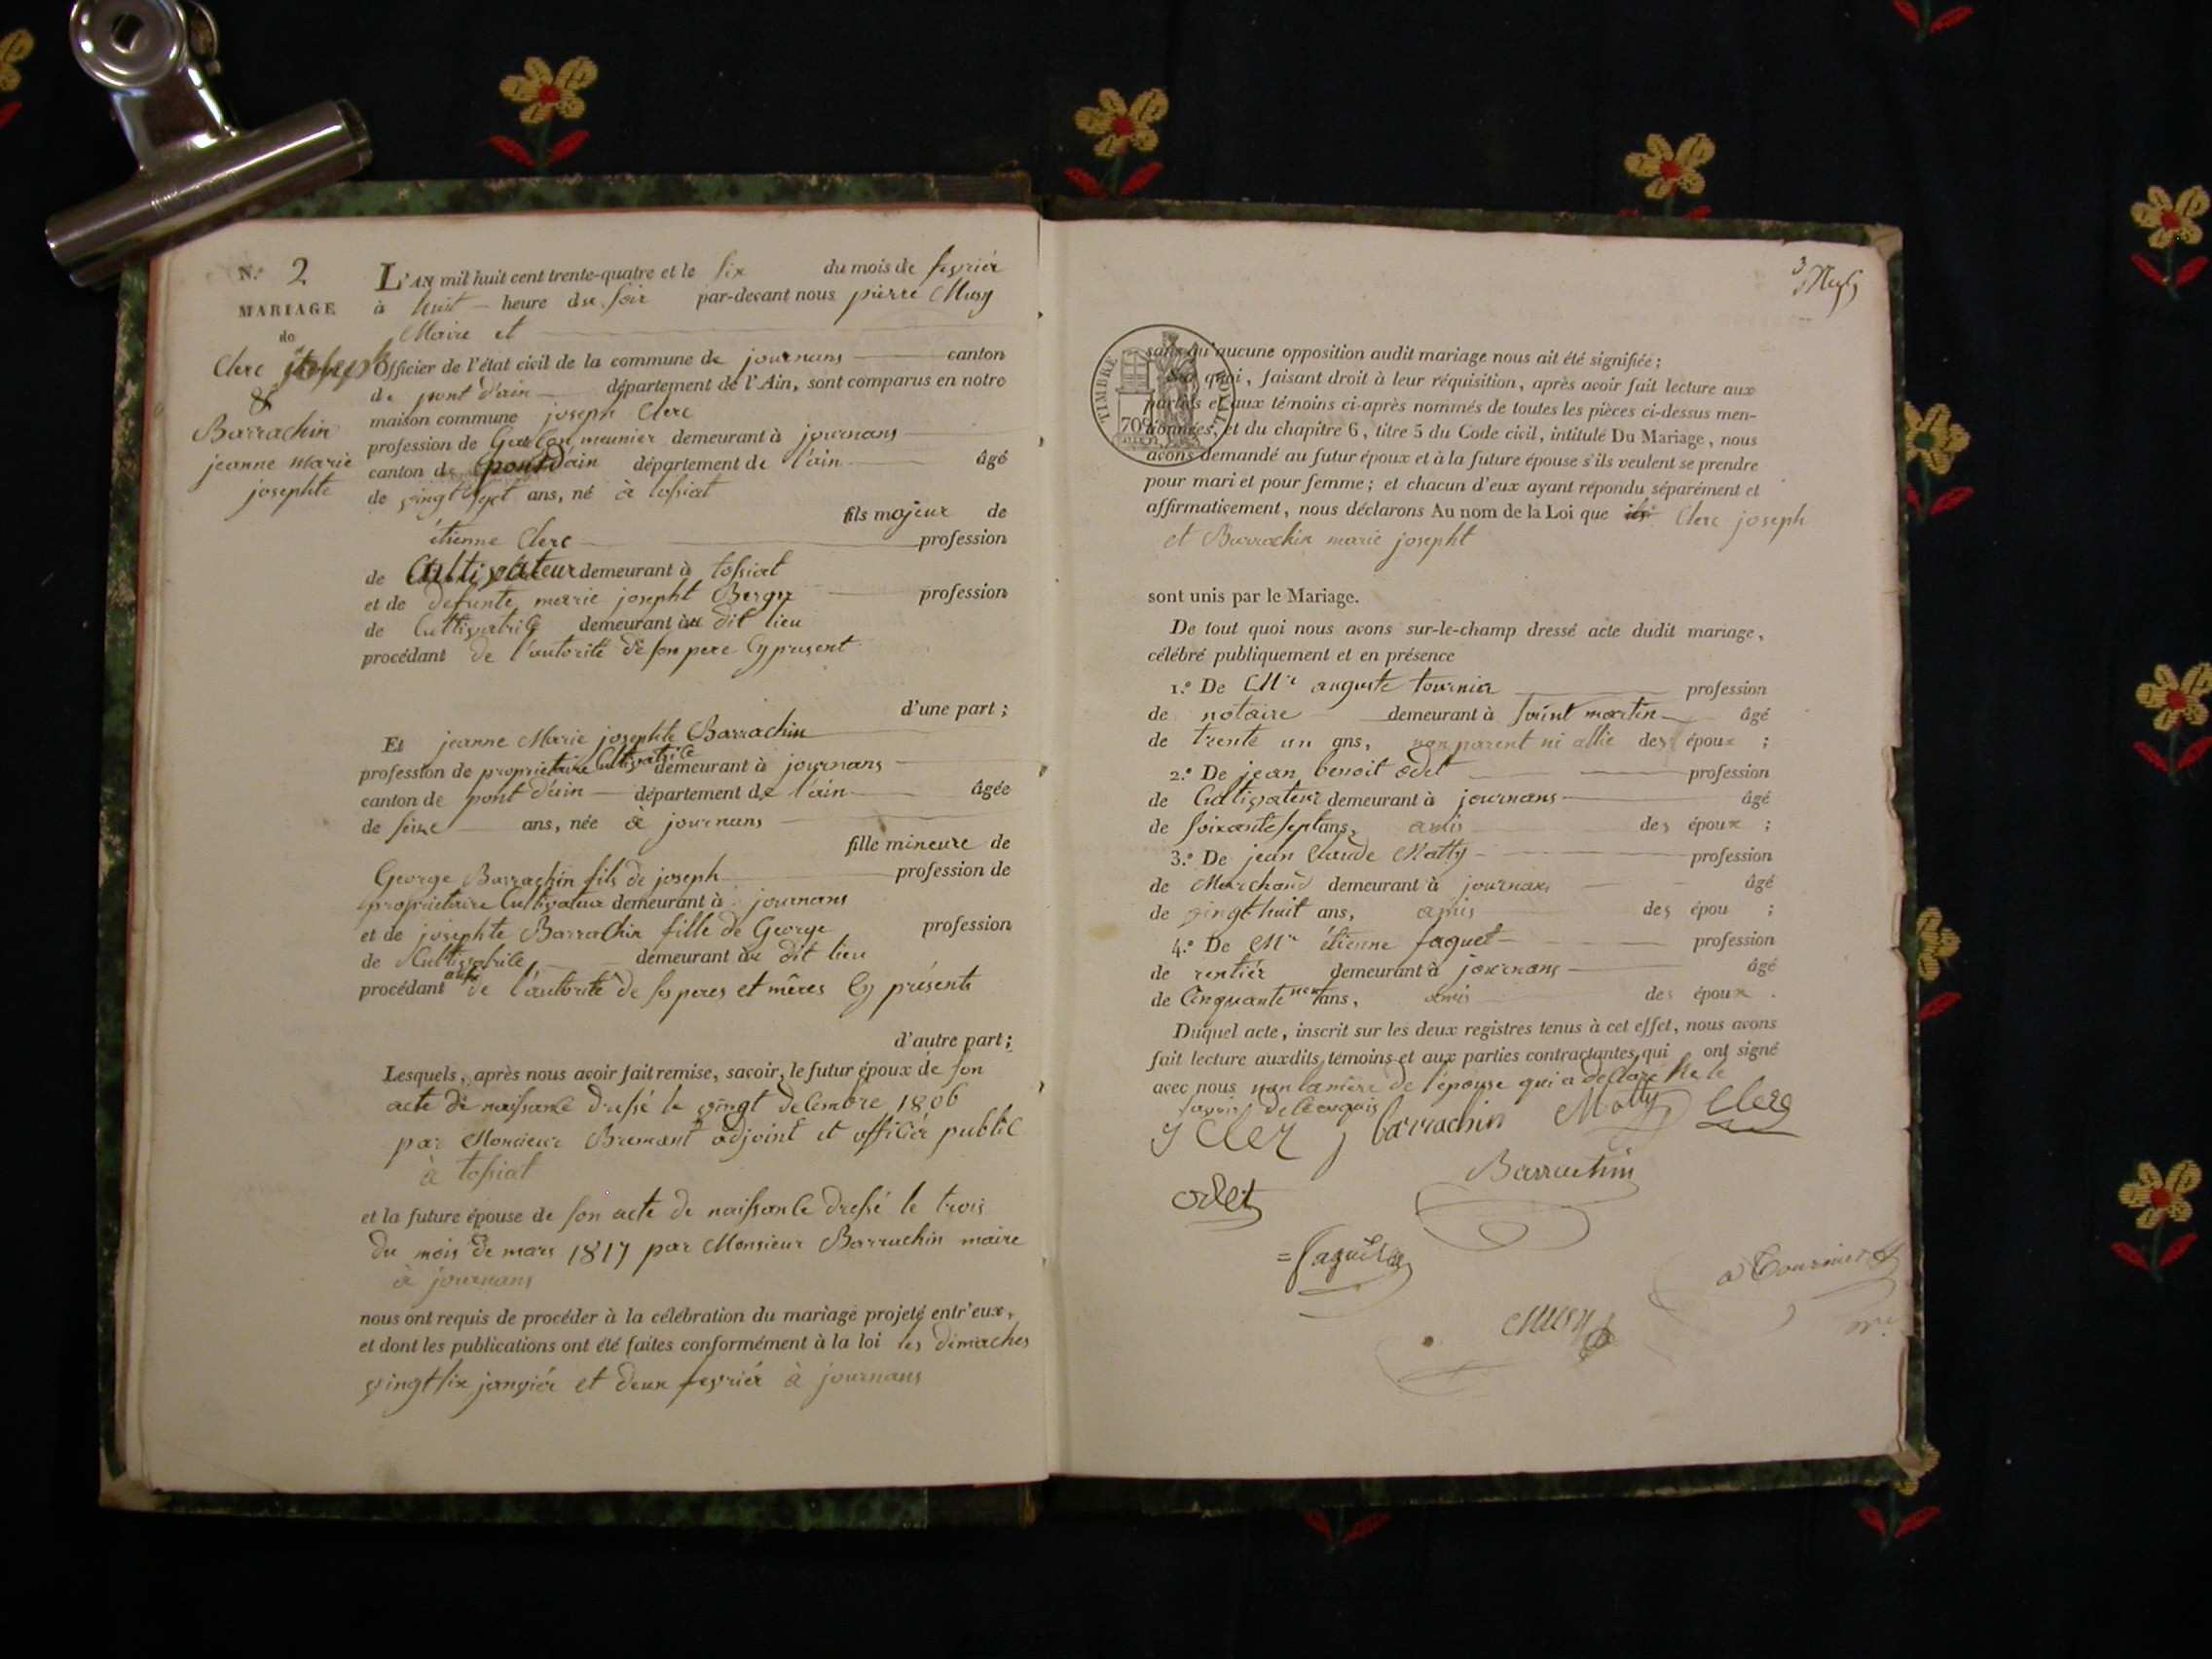 N.° 2
MARIAGE
de
Clerc joseph
&
Barrachin
jeanne marie
josephte
L'AN mil huit cent trente-quatre et le six du mois de fevrier
à huit heure du soir par-devant nous pierre Musy
Maire et
Officier de l'état civil de la commune de journans canton
de pont d'ain département de l'Ain, sont comparus en notre
maison commune joseph Clerc
profession de Garçon meunier demeurant à journans
canton de pont d'ain département de l'ain âgé
de vingt sept ans, né à tossiat
fils majeur de
étienne Clerc profession
de Cultivateur demeurant à tossiat
et de defunte marie josepht profession
de Cultivatrice demeurant au dit lieu
procédant de l'autorité de son pere Cy present
d'une part ;
Et jeanne Marie josephte Barrachin
profession de proprietaire Cultivatrice demeurant à journans
canton de pont d'ain département de l'ain âgée
de seize ans, née à journans
fille mineure de
George Barrachin fils de joseph profession de
proprietaire Cultivateur demeurant à journans
et de josephte Barrachin fille de George profession
de Cultivatrice demeurant au dit lieu
procédant de l'autorité de ses peres et mêres Cy présents
d'autre part ;
Lesquels, après nous avoir fait remise, savoir, le futur époux de son
acte de naissance dressé le vingt decembre 1806
par Monsieur adjoint et officier public
à tossiat
et la future épouse de son acte de naissance dressé le trois
du mois de mars 1817 par Monsieur Barrachin maire
à journans
nous ont requis de procéder à la célébration du mariage projeté entr'eux,
et dont les publications ont été faites conformément à la loi les dimaches
vingt six janvier et deux fevrier à journans
3
TIMBRE ROYAL
70c
sans qu'aucune opposition audit mariage nous ait été signifiée ;
Sur quoi, faisant droit à leur réquisition, après avoir fait lecture aux
parties et aux témoins ci-après nommés de toutes les pièces ci-dessus men-
tionnées, et du chapitre 6, titre 5 du Code civil, intitulé Du Mariage, nous
avons demandé au futur époux et à la future épouse s'ils veulent se prendre
pour mari et pour femme ; et chacun d'eux ayant répondu séparément et
affirmativement, nous déclarons Au nom de la Loi que Clerc joseph
et Barrachin marie josepht
sont unis par le Mariage.
De tout quoi nous avons sur-le-champ dressé acte dudit mariage,
célébré publiquement et en présence
1.° De Mr auguste tournier profession
de notaire demeurant à saint martin âgé
de trente un ans, non parent ni allie des époux ;
2.° De jean benoit odet profession
de Cultivateur demeurant à journans âgé
de soixante sept ans, amis des époux ;
3.° De jean Claude Matty profession
de Marchand demeurant à journans âgé
de vingt-huit ans, amis des épou ;
4.° De Mr étienne faguet profession
de rentiér demeurant à journans âgé
de Cinquante neuf ans, amis des époux .
Duquel acte, inscrit sur les deux registres tenus à cet effet, nous avons
fait lecture auxdits témoins et aux parties contractantes qui ont signé
avec nous non la mère de l'épouse qui a declaré ne le
savoir de Ce enquis
j barrachin Matty Clerc
Barrachin
odet
faguet
a Tournier
Musy